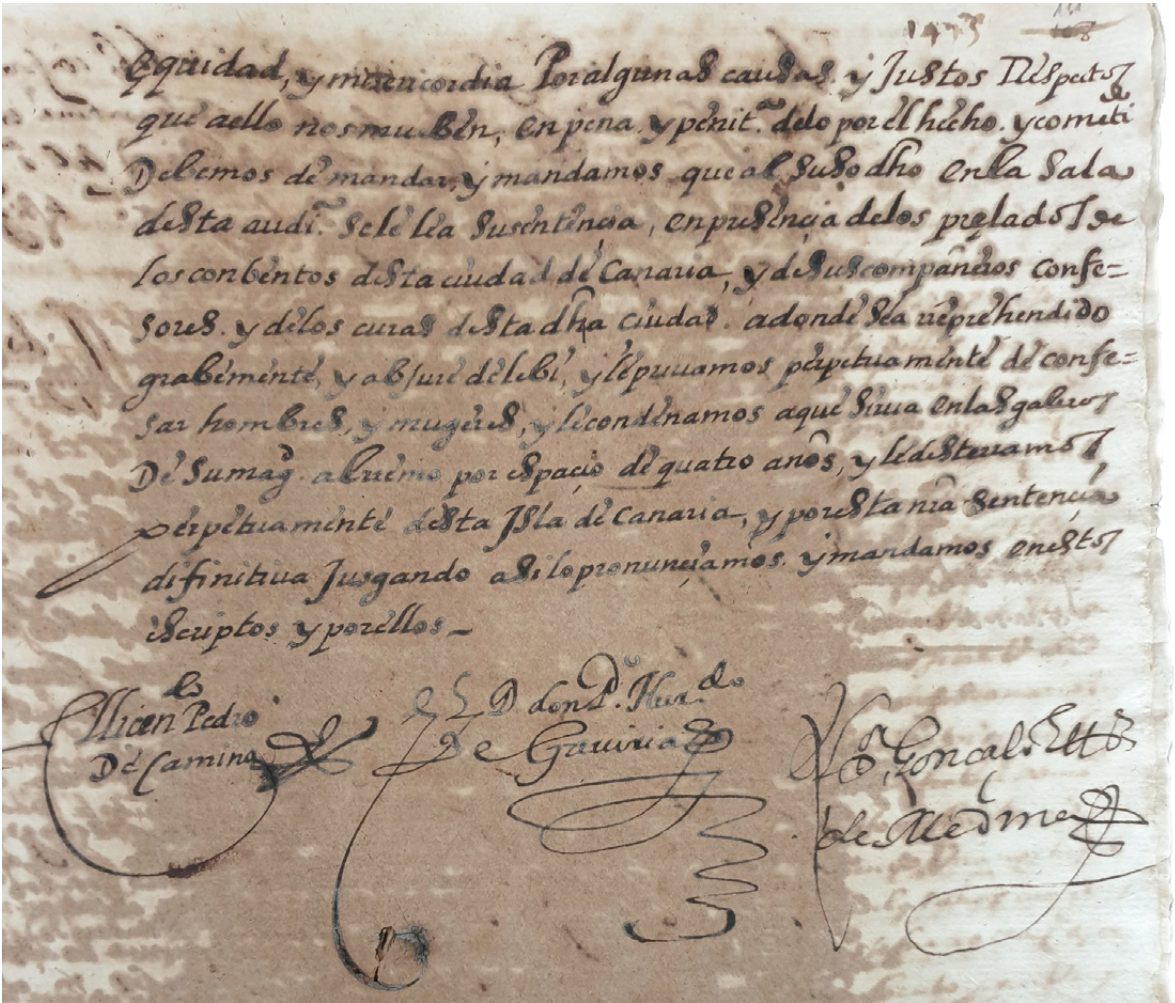 equidad, y misericordia Por algunas causas. y Justos Respectos
que a ello nos mueben, en pena. y penit.ª delo por el hecho. y cometi
Debemos de mandar, y mandamos que al suso dho en la sala
desta audi.ª se le lea su sentencia, en presencia delos prelados de
los conbentos desta ciudad de Canaria, y de sus compañeros confe=
sores. y delos curas desta dha ciudad. adonde sea reprehendido
grabemente, y abjure de lebi, y le priuamos perpetuamente de confe=
sar hombres, y mugeres, y le condenamos a que sirua en las galeras
De su mag. al remo por espacio de quatro años, y le desterramos
perpetuamente desta Isla de Canaria, y por esta nra sentencia
difinitiua Jusgando asi lo pronunciamos. y mandamos en estos
escriptos y por ellos_
El licen.do Pedro
De Camino
D. don P.º Hur.do
de Gauiria
Gonçalo
de Medina